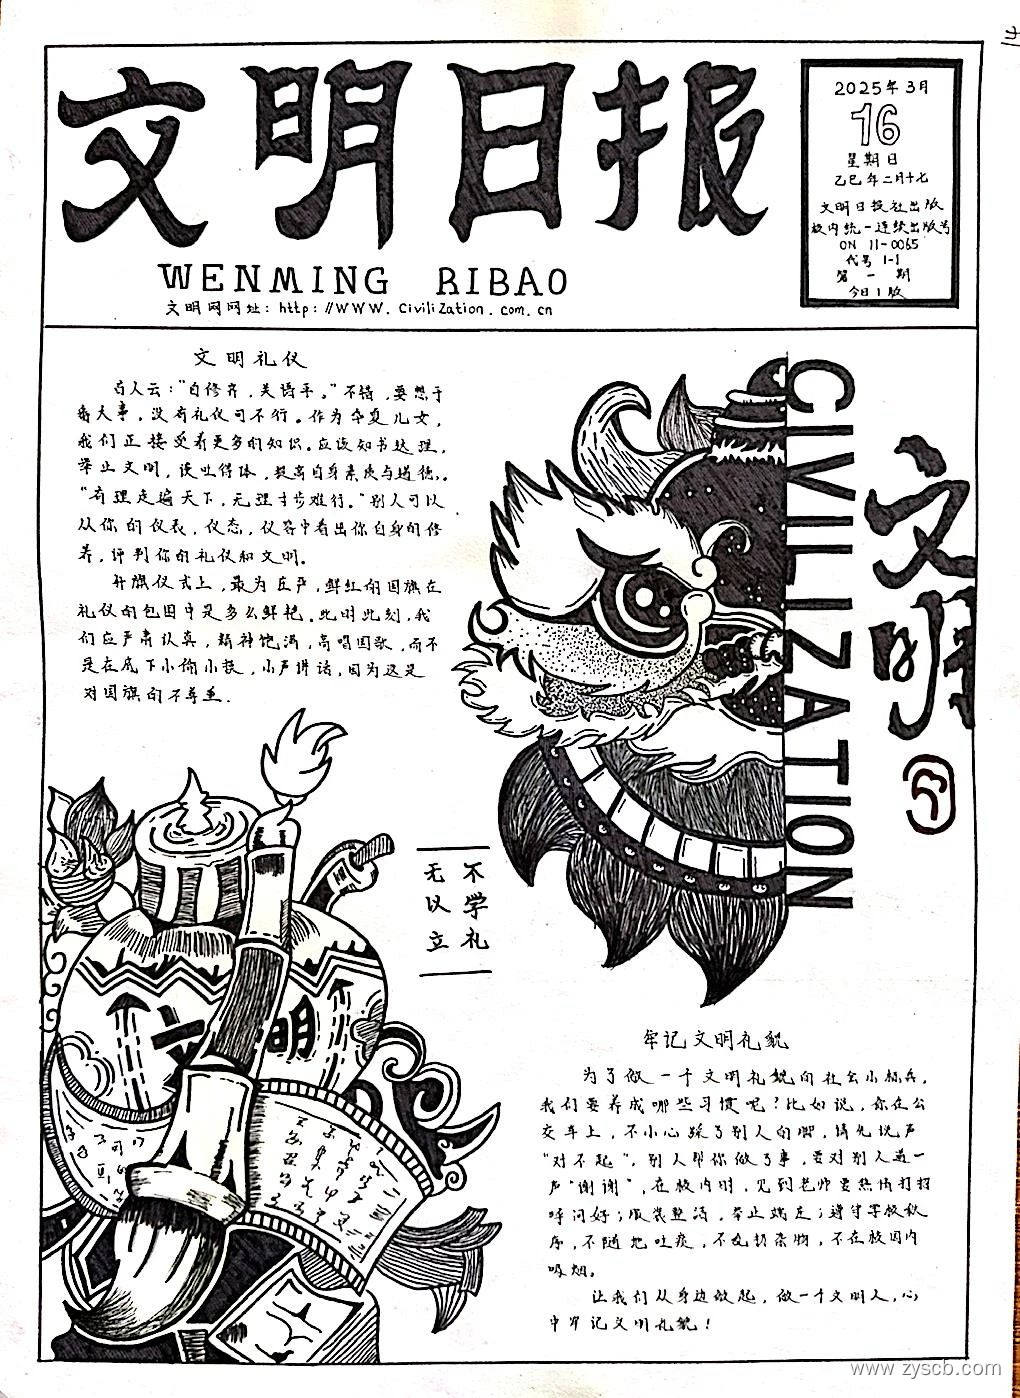 文明日报
WENMING RIBAO
文明网网址：http://WWW.CiviliZation.com.cn
2025年3月
16
星期日
乙巳年二月十七
文明日报社出版
校内统一连续出版号
ON 11-0065
代号1-1
第一期
今日1版
文明礼仪
古人云：“自修齐，关语平。”不错，要想于
番大事，没有礼仪可不行。作为华夏儿女，
我们正接受着更多的知识。应该知书达理，
举止文明，谈吐得体，提高自身素质与道德。
“有理走遍天下，无理寸步难行。”别人可以
从你的仪表，仪态，仪容中看出你自身的修
养，评判你的礼仪和文明。
升旗仪式上，最为庄严，鲜红的国旗在
礼仪的包围中是多么鲜艳。此时此刻，我
们应严肃认真，精神饱满，高唱国歌，而不
是在底下小偷小摸，小声讲话，因为这是
对国旗的不尊重.
CIVILIZATION
文明
不学礼
无以立
文明
牢记文明礼貌
为了做一个文明礼貌的社会小标兵，
我们要养成哪些习惯呢？比如说，你在公
交车上，不小心踩了别人的脚，请先说声
“对不起”，别人帮你做了事，要对别人道一
声“谢谢”，在校内时，见到老师要热情打招
呼问好；服装整洁，举止端庄；遵守学校秩
序，不随地吐痰，不乱扔杂物，不在校园内
吸烟。
让我们从身边做起，做一个文明人，心
中牢记文明礼貌！
www.zyscb.com